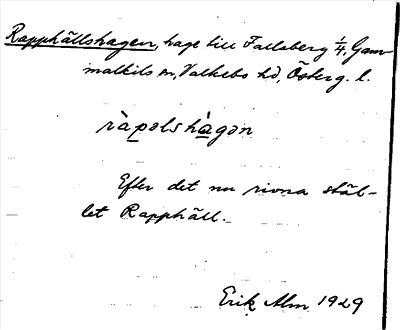 Rapphällshagen, hage till Falleberg 1/4, Gam-
malkils sn, Valkebo hd, Österg. l.
ràpolshàgon
Efter det nu rivna stäl-
let Rapphäll.
Erik Alm 1929